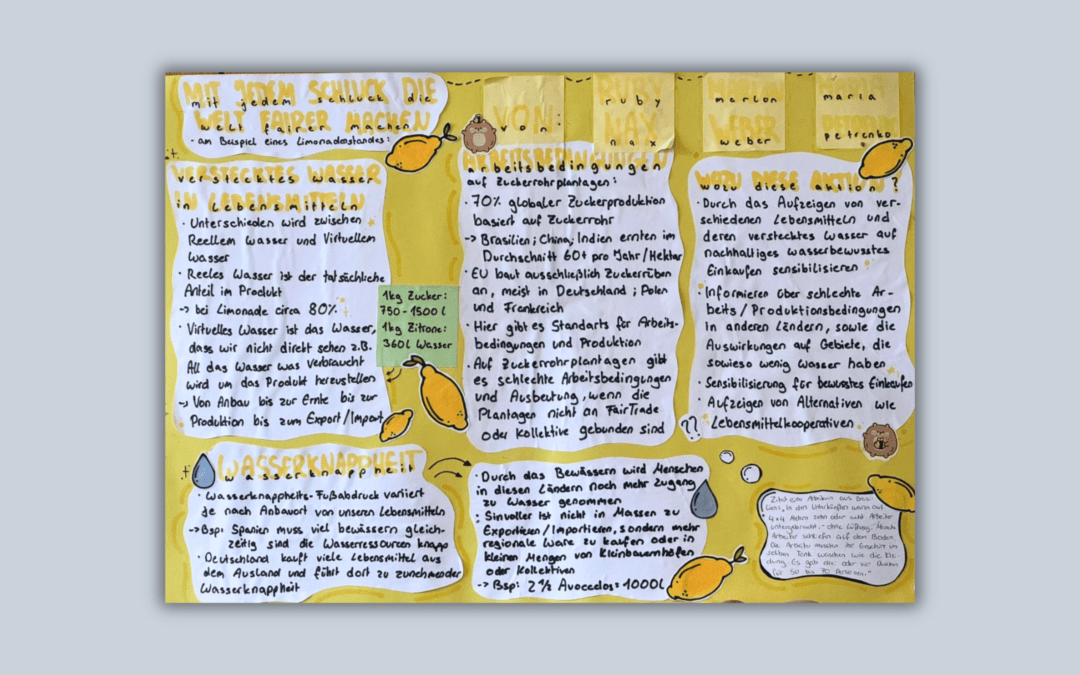 mit jedem schluck die
welt fairer machen
• am Beispiel eines Limonadenstandes:
von:
ruby
nax
marlon
weber
maria
petrenko
verstecktes wasser
in lebensmitteln
• Unterschieden wird zwischen
Reellem Wasser und Virtuellem
Wasser
• Reeles Wasser ist der tatsächliche
Anteil im Produkt
-> bei Limonade circa 80%
• Virtuelles Wasser ist das Wasser,
dass wir nicht direkt sehen z.B.
All das Wasser was verbraucht
wird um das Produkt herzustellen
-> Von Anbau bis zur Ernte bis zur
Produktion bis zum Export/Import
1kg Zucker:
750-1500 l
1kg Zitrone:
360l Wasser
arbeitsbedingungen
auf Zuckerrohrplantagen:
• 70% globaler Zuckerproduktion
basiert auf Zuckerrohr
-> Brasilien; China; Indien ernten im
Durchschnitt 60t pro Jahr/Hektar
• EU baut ausschließlich Zuckerrüben
an, meist in Deutschland; Polen
und Frankreich
• Hier gibt es Standarts für Arbeits-
bedingungen und Produktion
• Auf Zuckerrohrplantagen gibt
es schlechte Arbeitsbedingungen
und Ausbeutung, wenn die
Plantagen nicht an FairTrade
oder Kollektive gebunden sind
wozu diese aktion?
• Durch das Aufzeigen von ver-
schiedenen Lebensmitteln und
deren verstecktes Wasser auf
nachhaltiges wasserbewusstes
Einkaufen sensibilisieren
• Informieren über schlechte Ar-
beits/Produktionsbedingungen
in anderen Ländern, sowie die
Auswirkungen auf Gebiete, die
sowieso wenig Wasser haben
• Sensibilisierung für bewusstes Einkaufen
• Aufzeigen von Alternativen wie
Lebensmittelkooperativen
??
wasserknappheit
• Wasserknappheits-Fußabdruck variiert
je nach Anbauort von unseren Lebensmitteln
-> Bsp: Spanien muss viel bewässern gleich-
zeitig sind die Wasserressourcen knapp
• Deutschland kauft viele Lebensmittel aus
dem Ausland und führt dort zu zunehmender
Wasserknappheit
• Durch das Bewässern wird Menschen
in diesen Ländern noch mehr Zugang
zu Wasser genommen
• Sinvoller ist nicht in Massen zu
Exportieren/Importieren, sondern mehr
regionale Ware zu kaufen oder in
kleinen Mengen von Kleinbauernhöfen
oder Kollektiven
-> Bsp: 2 1/2 Avocados = 1000l
Zitat eines Arbeiters aus Bras
liens, in den Unterkünften waren auf
4x4 Metern zehn oder acht Arbeiter
untergebracht - ohne Lüftung. Manche
Arbeiter schliefen auf dem Boden.
Die Arbeiter mussten ihr Geschirr im
selben Tank waschen wie die Klei-
dung. Es gab drei oder vier Duschen
für 50 bis 70 Personen."